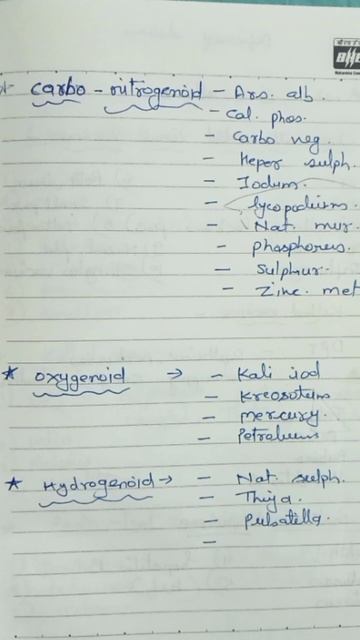 * carbo - nitrogenoid - Ars. alb.
- Cal. phos.
- Carbo veg.
- Heper sulph.
- Iodum.
- Lycopodium.
- Nat. mur.
- phosphorus.
- Sulphur.
- Zinc. met
* Oxygenoid → - Kali iod
- Kreosotum
- mercury.
- Petroleum
* Hydrogenoid → - Nat. sulph.
- Thuja.
- Pulsatilla.
-